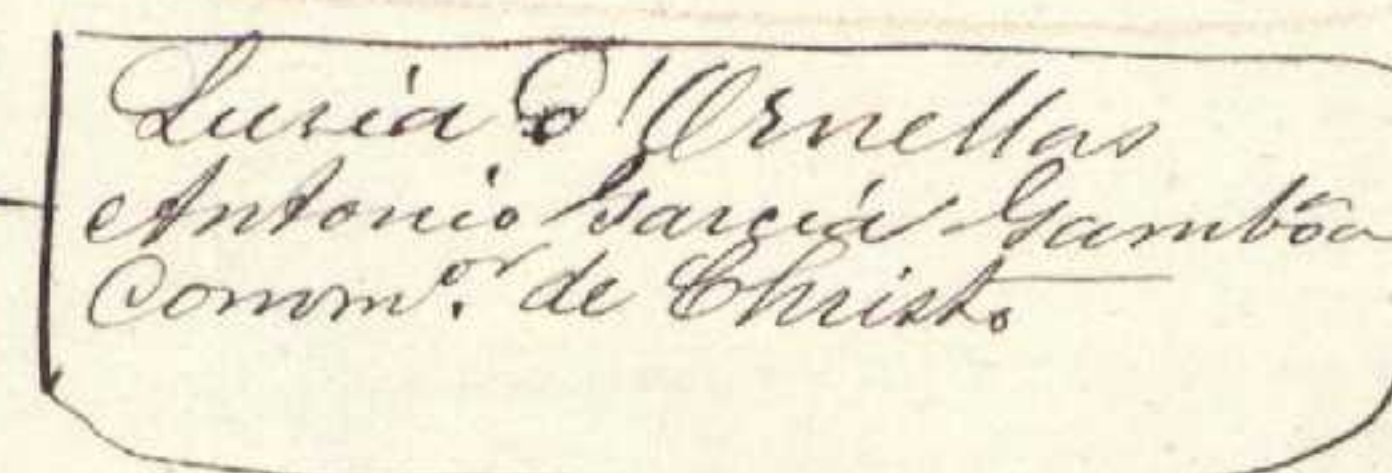 Lusia d'Ornellas
Antonio Garcia Gambôa
Comm.or de Christo